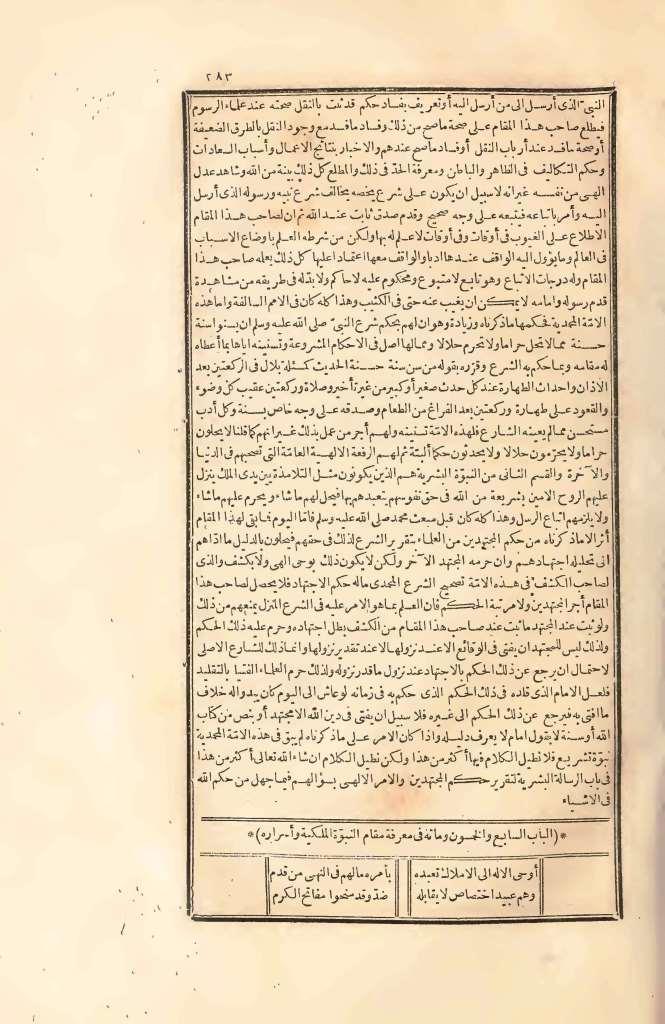 ٢٨٣
النبي الذي أرسل الى من أرسل اليه أو تعريف بفساد حكم قد ثبت بالنقل صحته عند علماء الرسوم
فيطلع صاحب هذا المقام على صحة ما صح من ذلك وفساد ما فسد مع وجود النقل بالطرق الضعيفة
أو صحة ما فسد عند أرباب النقل أو فساد ما صح عندهم والاخبار بنتائج الاعمال وأسباب السعادات
وحكم التكاليف في الظاهر والباطن ومعرفة الحد في ذلك والمطلع كل ذلك ببينة من الله وشاهد عدل
الهى من نفسه غير انه لا سبيل ان يكون على شرع يخصه يخالف شرع نبيه ورسوله الذي أرسل
اليه وأمر باتباعه فيتبعه على وجه صحيح وقدم صدق ثابت عند الله ثم ان لصاحب هذا المقام
الاطلاع على الغيوب في أوقات وفي أوقات لا علم له بها ولكن من شرطه العلم باوضاع الاسباب
في العالم وما يؤول اليه الواقف عندها ادبا والواقف معها اعتمادا عليها كل ذلك يعلمه صاحب هذا
المقام وله درجات الاتباع وهو تابع لا متبوع ومحكوم عليه لا حاكم ولا بد له في طريقه من مشاهدة
قدم رسوله وامامه لا يمكن ان يغيب عنه حتى في الكثيب وهذا كله كان في الامم السالفة واما هذه
الامّة المحمدية فحكمها ما ذكرناه وزيادة وهو ان لهم بحكم شرع النبي صلى الله عليه وسلم ان يسنوا سنة
حسنة مما لا تحل حراما ولا تحرم حلالا ومما لها اصل في الاحكام المشروعة وتسنينه اياها بما أعطاه
له مقامه وما حكم به الشرع وقرّره بقوله من سن سنة حسنة الحديث كمسئلة بلال في الركعتين بعد
الاذان واحداث الطهارة عند كل حدث صغير أو كبير من غير تأخير وصلاة ركعتين عقيب كل وضوء
والقعود على طهارة وركعتين بعد الفراغ من الطعام وصدقه على وجه خاص بسنة وكل أدب
مستحسن مما لم يعينه الشارع فلهذه الامّة تسنينه ولهم أجر من عمل بذلك غير انهم كما قلنا لا يحلون
حراما ولا يحرّمون حلالا ولا يحدثون حكما ألبتة ثم لهم الرفعة الالهية العامّة التي تصحبهم في الدنيا
والآخرة والقسم الثاني من النبوّة البشرية هم الذين يكونون مثل التلامذة بين يدى الملك ينزل
عليهم الروح الامين بشريعة من الله في حق نفوسهم يتعبدهم بها فيحل لهم ما شاء ويحرم عليهم ماشاء
ولا يلزمهم اتباع الرسل وهذا كله كان قبل مبعث محمد صلى الله عليه وسلم فامّا اليوم فما بقى لهذا المقام
أثر الا ما ذكرناه من حكم المجتهدين من العلماء بتقرير الشرع لذلك في حقهم فيحلون بالدليل ما اداهم
الى تحليله اجتهادهم وان حرمه المجتهد الآخر ولكن لا يكون ذلك بوحى الهى ولا بكشف والذي
لصاحب الكشف في هذه الامّة تصحيح الشرع المحمدى ماله حكم الاجتهاد فلا يحصل لصاحب هذا
المقام أجر المجتهدين ولا مرتبة الحكم فان العلم بما هو الامر عليه في الشرع المنزل يمنعهم من ذلك
ولو ثبت عند المجتهد ما ثبت عند صاحب هذا المقام من الكشف بطل اجتهاده وحرم عليه ذلك الحكم
ولذلك ليس للمجتهد ان يفتى في الوقائع الا عند نزولها لا عند تقدير نزولها وانما ذلك للشارع الاصلى
لاحتمال ان يرجع عن ذلك الحكم بالاجتهاد عند نزول ما قدر نزوله ولذلك حرم العلماء الفتيا بالتقليد
فلعل الامام الذي قلده في ذلك الحكم الذي حكم به في زمانه لو عاش الى اليوم كان يبدوله خلاف
ما افتى به فيرجع عن ذلك الحكم الى غيره فلا سبيل ان يفتى في دين الله الا مجتهد أو بنص من كتاب
الله أو سنة لا يقول امام لا يعرف دليله واذا كان الامر على ما ذكرناه لم يبق في هذه الامّة المحمدية
نبوّة تشريع فلا نطيل الكلام فيها أكثر من هذا ولكن نطيل الكلام ان شاء الله تعالى أكثر من هذا
في باب الرسالة البشرية لتقرير حكم المجتهدين والامر الالهى بسؤالهم فيما جهل من حكم الله
في الاشياء
*(الباب السابع والخمسون ومائة في معرفة مقام النبوّة الملكية وأسراره)*
أوحى الاله الى الاملاك تعبده بأمره مالهم في النهى من قدم
وهم عبيد اختصاص لا يقابله ضدّ وقد منحوا مفاتح الكرم